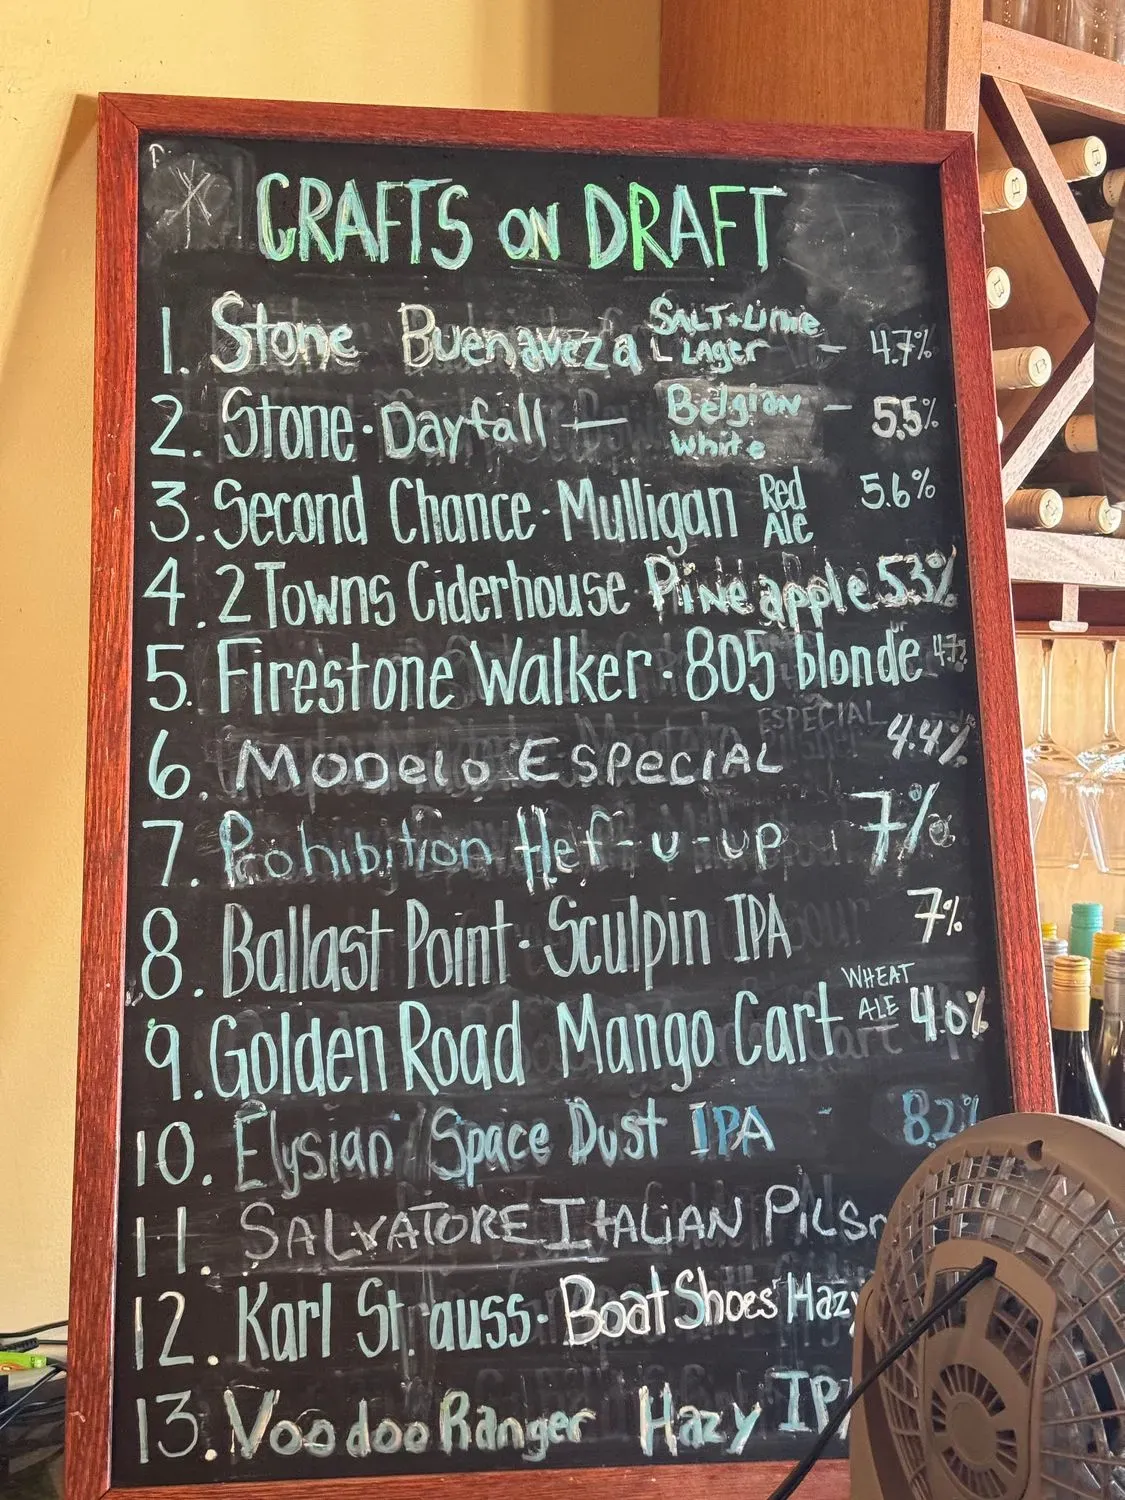 CRAFTS ON DRAFT
1. Stone Buenaveza SALT + Lime Lager - 4.7%
2. Stone · Dayfall - Belgian White - 5.5%
3. Second Chance · Mulligan Red Ale 5.6%
4. 2 Towns Ciderhouse Pineapple 5.3%
5. Firestone Walker · 805 blonde 4.7%
ESPECIAL
6. Modelo Especial 4.4%
7. Prohibition Hef-u-up 7%
8. Ballast Point · Sculpin IPA 7%
9. Golden Road Mango Cart WHEAT ALE 4.0%
10. Elysian Space Dust IPA - 8.2%
11. SALVATORE ITALIAN PILSn
12. Karl Strauss · Boat Shoes Hazy
13. Voodoo Ranger Hazy IP